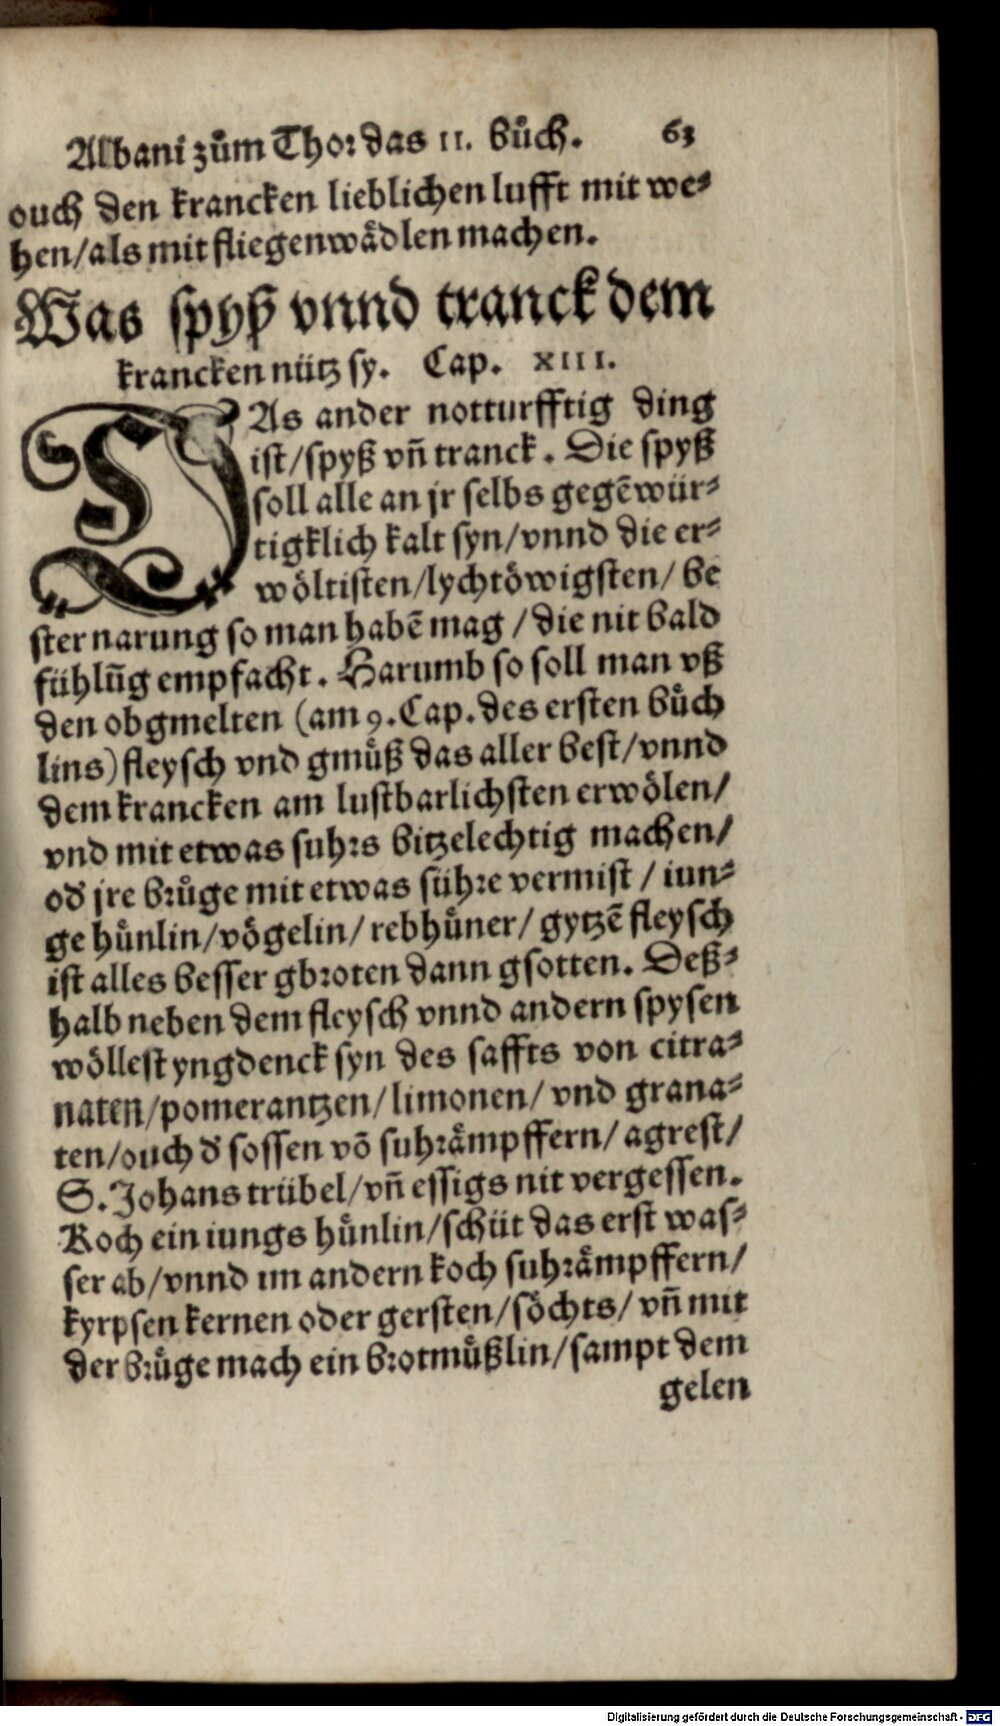 Albani zům Thor das II. Bůch. 63
ouch den krancken lieblichen lufft mit we⸗
hen/als mit fliegenwådlen machen.
Was spyß vnnd tranck dem
krancken nütz sy. Cap. XIII.
DAs ander notturfftig ding
ist/spyß vñ tranck. Die spyß
soll alle an jr selbs gegẽwür⸗
tigklich kalt syn/vnnd die er⸗
wöltisten/lychtöwigsten/ be
ster narung so man habẽ mag /die nit bald
fühlũg empfacht. Harumb so soll man vß
den obgmelten (am 9. Cap. des ersten bůch
lins) fleysch vnd gmůß das aller best/vnnd
dem krancken am lustbarlichsten erwölen/
vnd mit etwas suhrs bitzelechtig machen/
od jre brůge mit etwas sühre vermist / iun⸗
ge hůnlin/vögelin/ rebhůner/ gytzẽ fleysch
ist alles besser gbroten dann gsotten. Deß⸗
halb neben dem fleysch vnnd andern spysen
wöllest yngdenck syn des saffts von citra⸗
naten/pomerantzen/limonen/ vnd grana⸗
ten/ouch d sossen võ suhråmpffern/ agrest/
S. Johans trübel/vñ essigs nit vergessen.
Koch ein iungs hůnlin/schüt das erst was⸗
ser ab/vnnd im andern koch suhråmpffern/
kyrpsen kernen oder gersten/söchts/ vñ mit
der brůge mach ein brotmůßlin/sampt dem
gelen
Digitalisierung gefördert durch die Deutsche Forschungsgemeinschaft - DFG